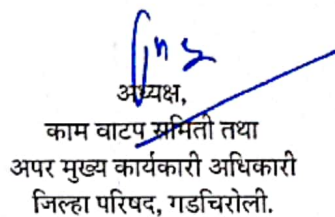 अध्यक्ष,
काम वाटप समिती तथा
अपर मुख्य कार्यकारी अधिकारी
जिल्हा परिषद, गडचिरोली.